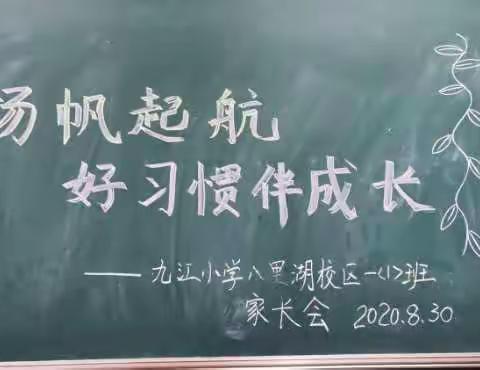 扬帆起航
好习惯伴成长
——九江小学八里湖校区一<1>班
家长会 2020.8.30